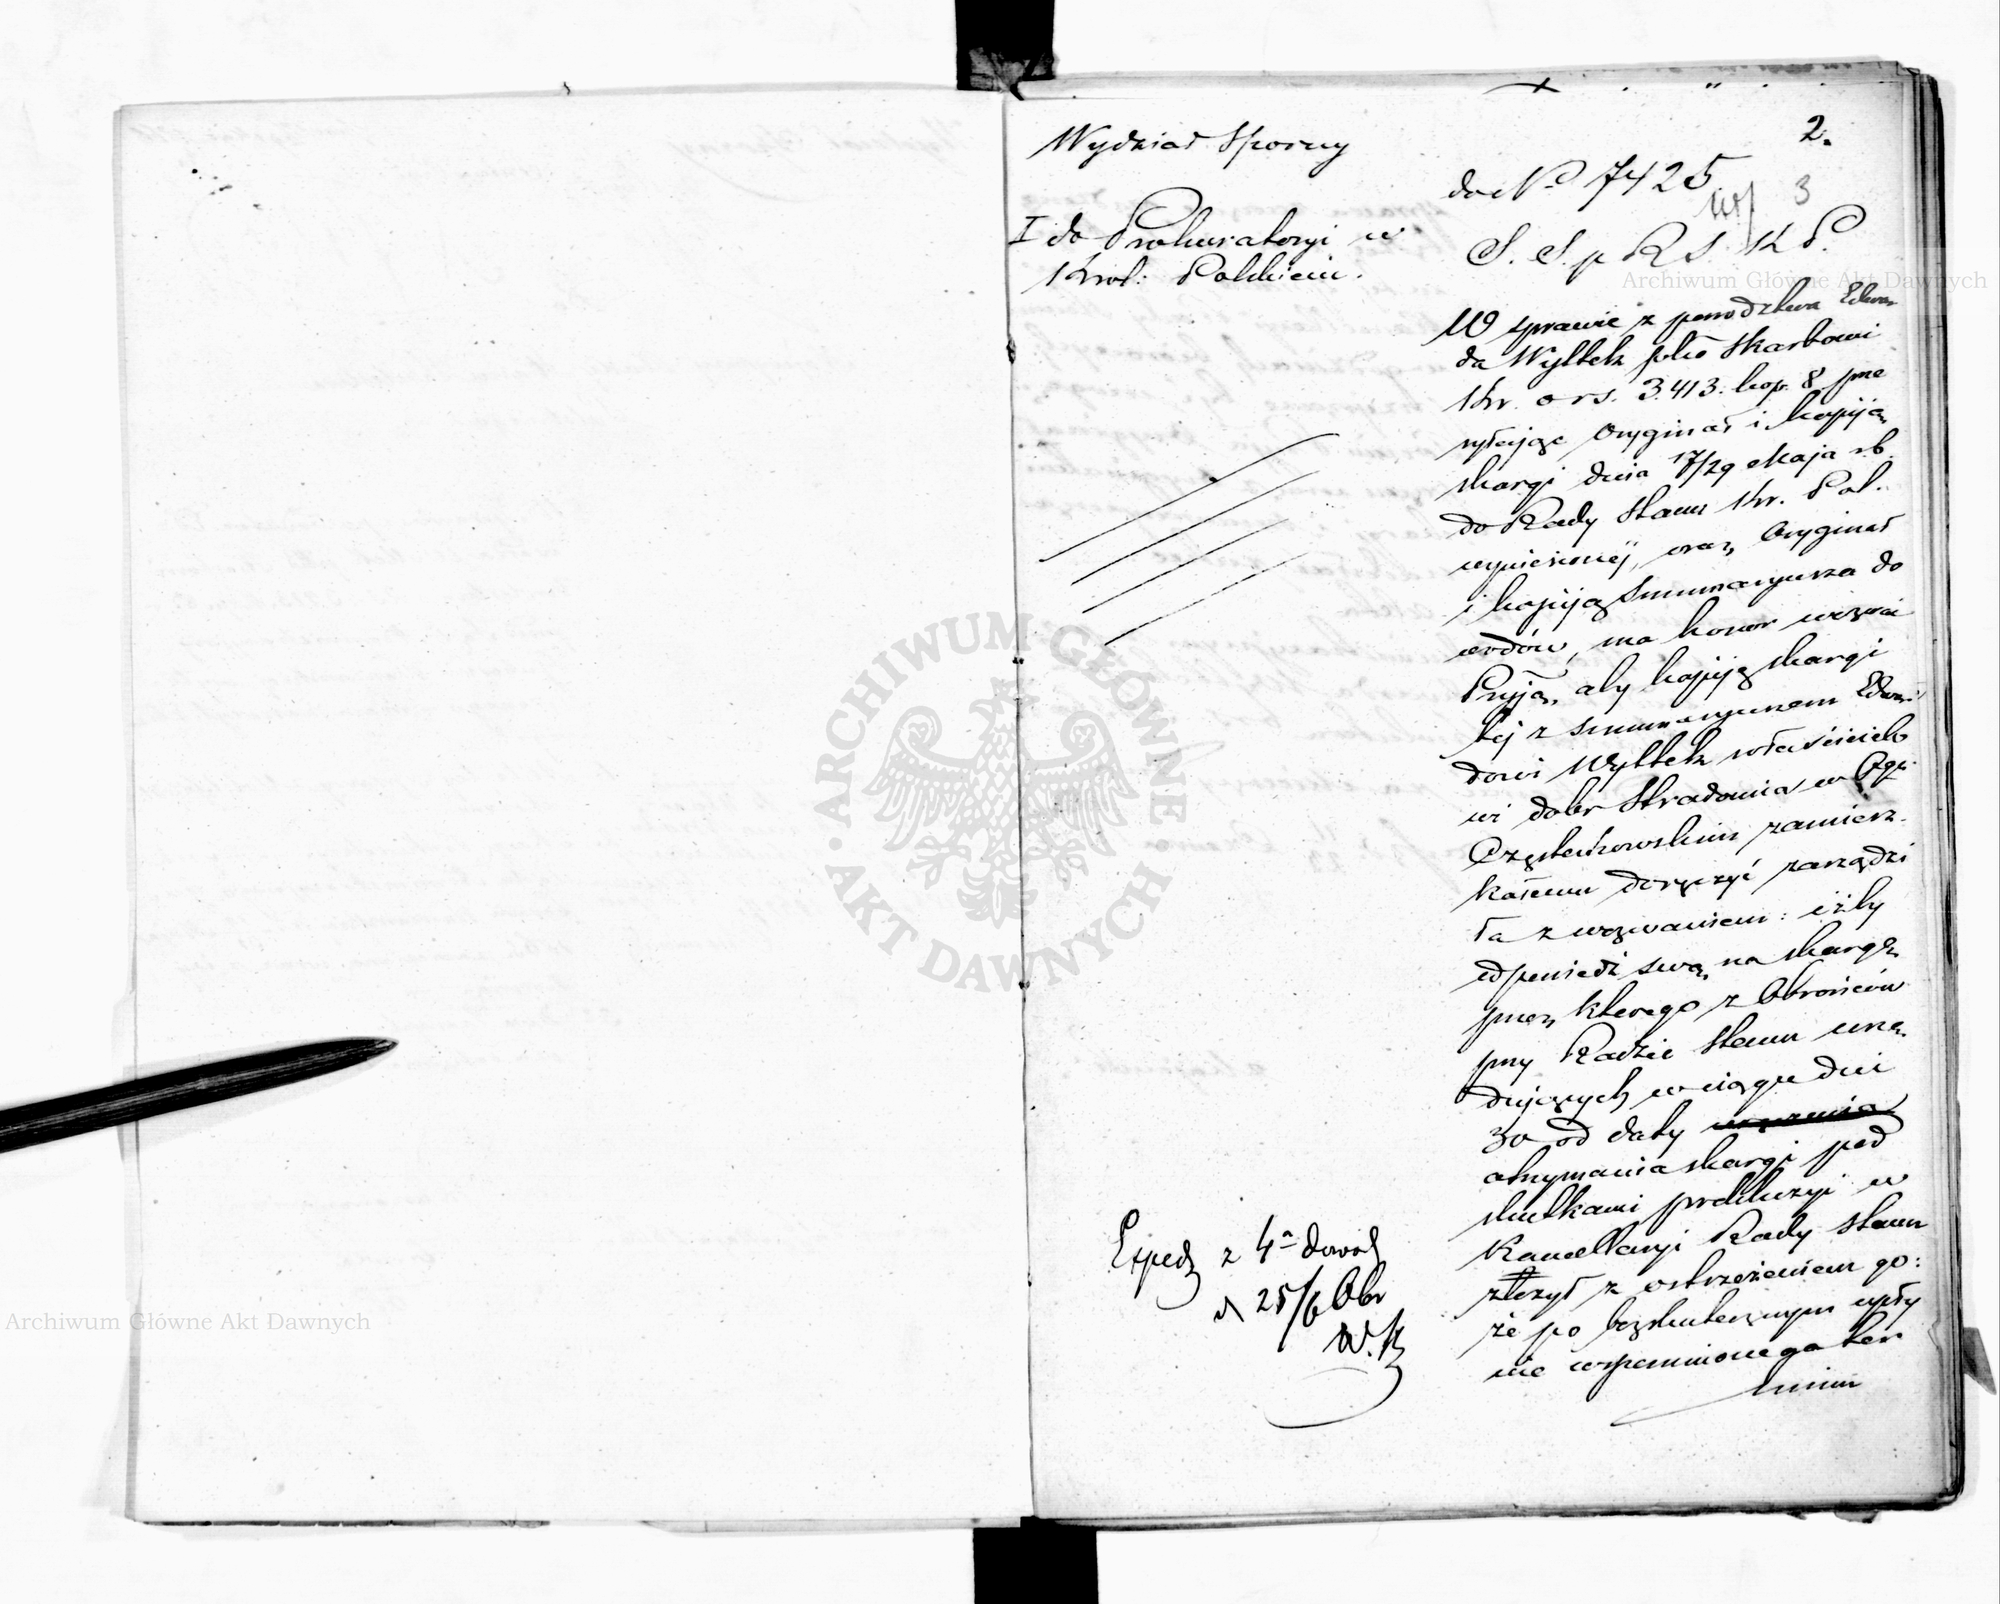 2.
Wydział Sporny
do No 7425
3
I do Prokuratoryi w
Król: Polskiem.
S. S. p R S. K P.
W sprawie z powództwa Edwar
da Wyttek ptko Skarbowi
Kr. o rs. 3.413. kop. 8. prze
syłając Oryginał i kopiją
skargi dnia 17/29 Maja rb.
do Rady Stanu Kr. Pol.
wyniesionej, oraz Oryginał
i kopiją Summaryusza do
wodów, ma honor wezwać
Pryją, aby kopiję skargi
tej z summaryuszem Edwar
dowi Wyttek właścicielo
wi dobr Stradomia w Ogu
Częstochowskim zamiesz
kałemu doręczyć zarządzi
ła z wezwaniem: iżby
odpowiedź swą na skargę
przez którego z Obrońców
przy Radzie Stanu urzę
dujących w ciągu dni
30 od daty
otrzymania skargi pod
skutkami prekluzyi w
Kancellaryi Rady Stanu
złożył z ostrzeżeniem go:
że po bezskutecznym upły
nie wspomnionego ter
minu
Exped z 4a dowod
d 25/6 Obr
W. K
ARCHIWUM GŁÓWNE
AKT DAWNYCH
Archiwum Główne Akt Dawnych
Archiwum Główne Akt Dawnych